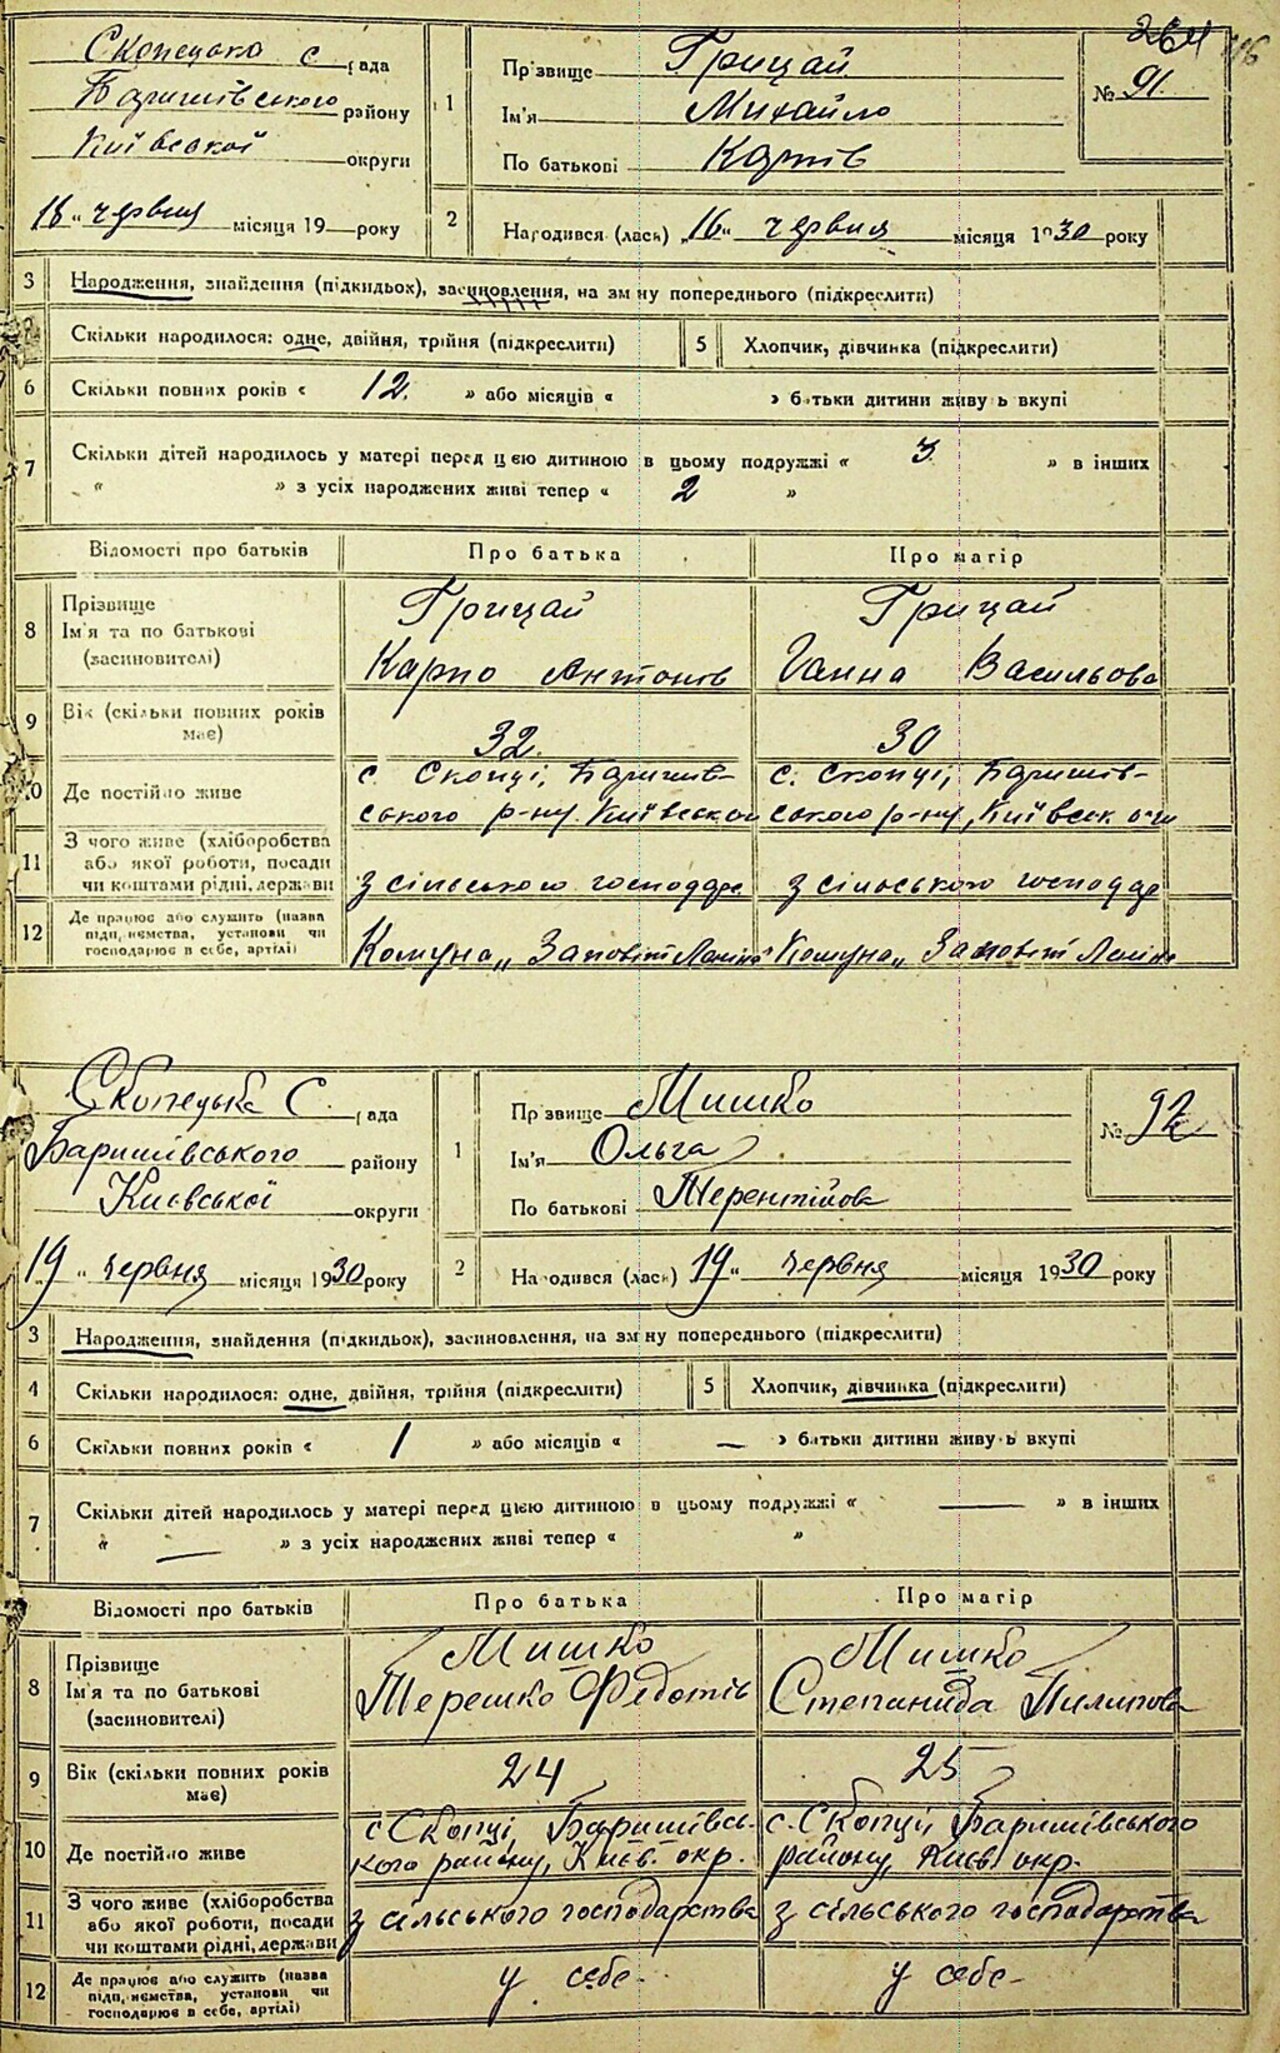 264
Скопецька с рада
Баришівського району
Київської округи
18 " червня місяця 19 року
1
Прізвище Грицай
Ім'я Михайло
По батькові Карпів
№ 91
2
Народився (лась) „16" червня місяця 1930 року
3 Народження, знайдення (підкидьох), засиновлення, на зміну попереднього (підкреслити)
Скільки народилося: одне, двійня, трійня (підкреслити) 5 Хлопчик, дівчинка (підкреслити)
6 Скільки повних років « 12. » або місяців « » батьки дитини живуть вкупі
7 Скільки дітей народилось у матері перед цією дитиною в цьому подружжі « 3 » в інших
« » з усіх народжених живі тепер « 2 »
Відомості про батьків Про батька Про матір
8 Прізвище Грицай Грицай
Ім'я та по батькові
(засиновителі) Карпо Антонів Ганна Васильова
9 Вік (скільки повних років має) 32. 30
10 Де постійно живе с. Скопці, Баришів- с. Скопці, Баришів-
ського р-ну Київської ського р-ну, Київськ
11 З чого живе (хліборобства
або якої роботи, посади
чи коштами рідні, держави з сільського господар з сільського господар
12 Де працює або служить (назва
підприємства, установи чи
господарює в себе, артілі) Комуна „Заповіт Леніна" Комуна „Заповіт Леніна
Скопецька С. рада
Баришівського району
Києвської округи
„19" червня місяця 1930 року
1
Прізвище Мишко
Ім'я Ольга
По батькові Терентійова
№ 92
2
Народився (лась) 19" червня місяця 1930 року
3 Народження, знайдення (підкидьок), засиновлення, на зміну попереднього (підкреслити)
4 Скільки народилося: одне, двійня, трійня (підкреслити) 5 Хлопчик, дівчинка (підкреслити)
6 Скільки повних років « 1 » або місяців « — » батьки дитини живуть вкупі
7 Скільки дітей народилось у матері перед цією дитиною в цьому подружжі « — » в інших
« — » з усіх народжених живі тепер « »
Відомості про батьків Про батька Про матір
8 Прізвище Мишко Мишко
Ім'я та по батькові Терешко Федотів Степанида Пилипова
(засиновителі)
9 Вік (скільки повних років має) 24 25
10 Де постійно живе с Скопці, Баришівсь- с. Скопці, Баришівського
кого району, Києв. окр. району, Києв. окр.
11 З чого живе (хліборобства
або якої роботи, посади
чи коштами рідні, держави з сільського господарства з сільського господарства
12 Де працює або служить (назва
підприємства, установи чи
господарює в себе, артілі) у себе- у себе-